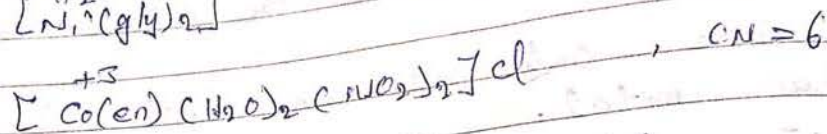 [Ni+2(gly)2]
[Co+3(en)(H2O)2(NO2)2]Cl , CN = 6